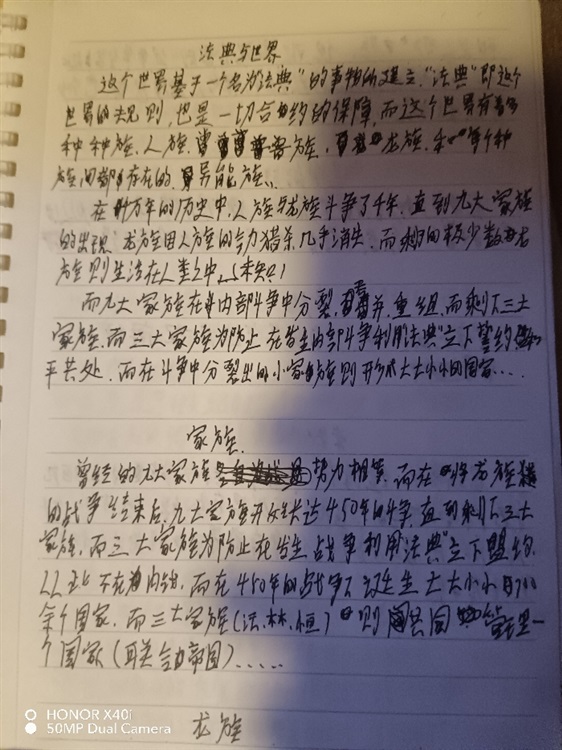 法典与世界
这个世界基于一个名为"法典"的事物所建立,"法典"即这个
世界的规则,也是一切合约的保障,而这个世界有
种种族,人族,族,龙族,和各个种
族间都存在的,异能族。
在万年的历史中,人族与龙族斗争了千年,直到九大家族
的出现,龙族因人族的势力猎杀几乎消失,而剩间极少数龙
族则生活在人类之中,(未知)
而九大家族在内部斗争中分裂,吞并,重组,而剩下三大
家族,而三大家族为防止在发生内部斗争利用"法典"立下誓约,和
平共处,而在斗争中分裂出的小家族则形成大大小小的国家....
家族
曾经的九大家族势力相等,而在将龙族
的战争结束后,九大家族开始长达450年斗争,直到剩下三大
家族,而三大家族为防止在发生战争利用"法典"立下盟约,
以至不在内乱,而在450年的战争下诞生大大小小的700
余个国家,而三大家族(法、林、恒)则一
个国家(联合帝国).....
龙族
HONOR X40i
50MP Dual Camera